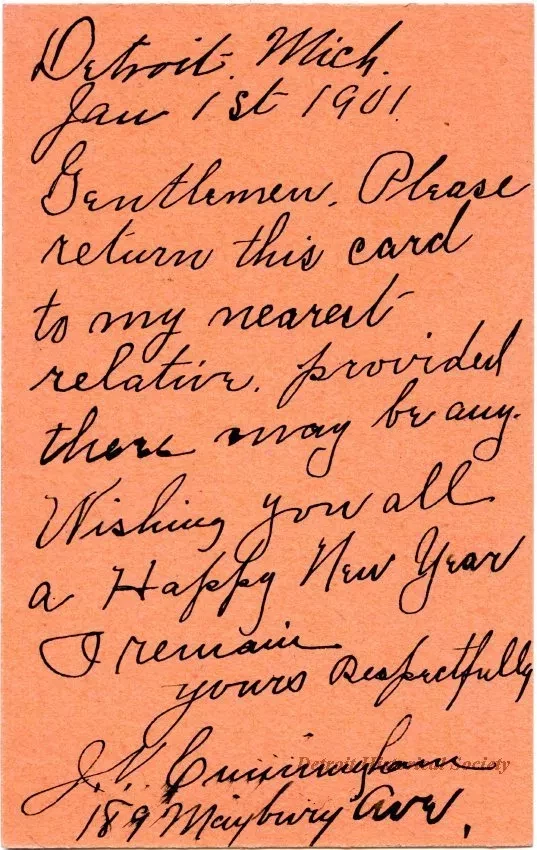 Detroit. Mich.
Jan 1st 1901.
Gentlemen. Please
return this card
to my nearest
relative. provided
there may be any.
Wishing you all
a Happy New Year
I remain
yours Respectfully
J. N. Cunningham
Detroit Historical Society
189 Maybury Ave,